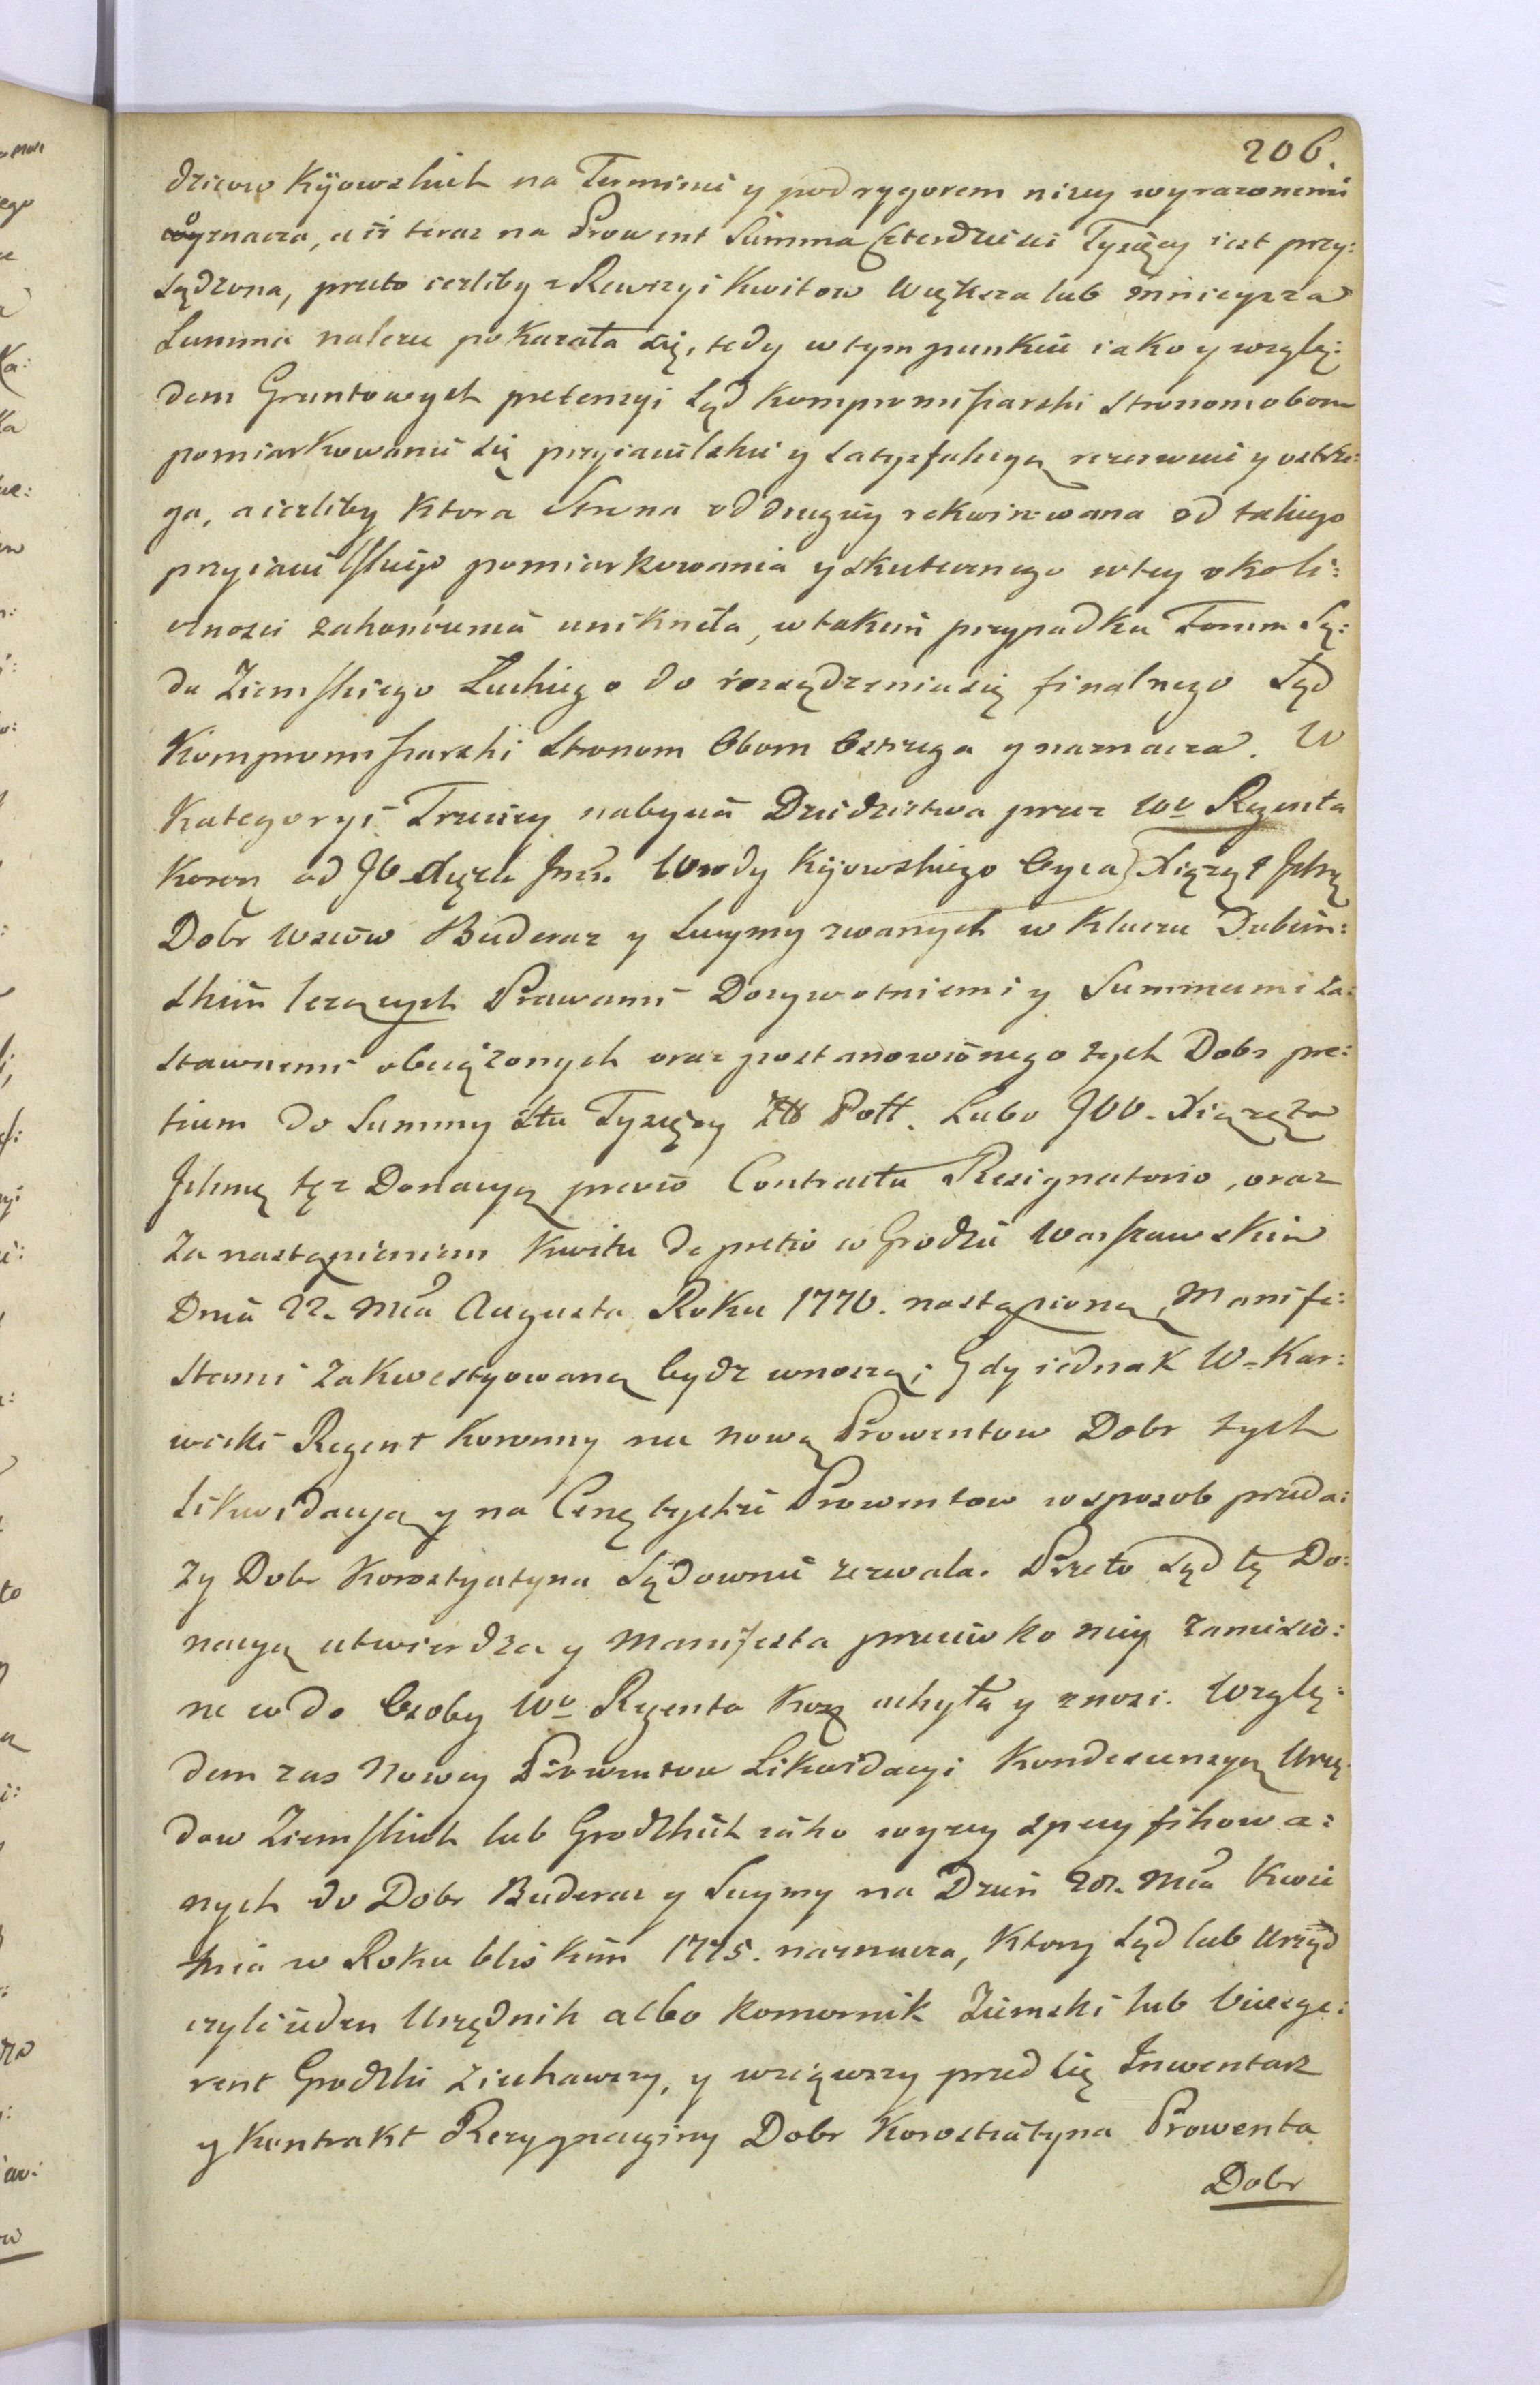 206.
dziców Kijowskich na Terminie y pod rygorem niżey wyrażonemi
wyznacza, a iż teraz na Prowent Summa Czterdzieści Tysięcy iest przy:
sądzona, przeto ieżeliby z Rewizyi Kwitow Większa lub mnieysza
Summa należeć pokazała się, tedy w tym punkcie iako y wzglę:
dem Gruntowych pretensyi Sąd Kompromissarski Stronom obom
pomiarkowanie się przyiacielskie y satysfakcyą rezerwuie y ostrze:
ga, a ieżliby Ktora Strona od drugiey rekwirowana od takiego
przyiacielskiego pomiarkowania y skutecznego w tey okoli:
cznosci zakonczenia uniknęła, w takim przypadku Forum Są:
du Ziemskiego Łuckiego do rozsądzenia się finalnego Sąd
Kompromissarski Stronom Obom Ostrzega y naznacza. W
Kategoryi Trzeciey nabycia Dziedzictwa przez Wo Regenta
Koron od JO Xięcia Jmci Wody Kijowskiego Oyca Xiążąt Ichmę
Dobr Wsiów Buderaz y Suymy zwanych w Kluczu Dubień:
skim leżących Prawami Dożywotniemi y Summami Za:
stawnemi obciążonych oraz postanowionego tych Dobr pre:
tium do Summy Stu Tysięcy Zł Poll. Lubo JOO. Xiążęta
Ichmę tęż Donacyą previo Contractu Resignatorio, oraz
za nastąpieniem Kwitu de pretio w Grodzie Warszawskim
Dnia 22. Mca Augusta Roku 1770. nastąpioną, Manife:
stami zakwestyowaną bydź wnoszą; Gdy iednak W. Kar:
wicki Regent Koronny na nową Prowentow Dobr tych
Likwidacyą y na Cenę tychże Prowentow w sposob przeda:
ży Dobr Korostyatyna Sądownie zezwala. Przeto Sąd tę Do:
nacyą utwierdza y Manifesta przeciwko niey zaniesio:
ne co do Osoby Wo Regenta Kor uchyla y znosi. Wzglę:
dem zas Nowey Prowentow Likwidacyi Kondescensyą Urzę:
dow Ziemskich lub Grodzkich iako wyżey specyfikowa:
nych do Dobr Buderaz y Suymy na Dzień 20. Mca Kwie
tnia w Roku bliskim 1775. naznacza, Ktory Sąd lub Urząd
czyli ieden Urzędnik albo Komornik Ziemski lub Vicesge:
rent Grodzki ziechawszy, y wziąwszy przed się Inwentarz
y Kontrakt Rezygnacyiny Dobr Korostiatyna Prowenta
Dobr